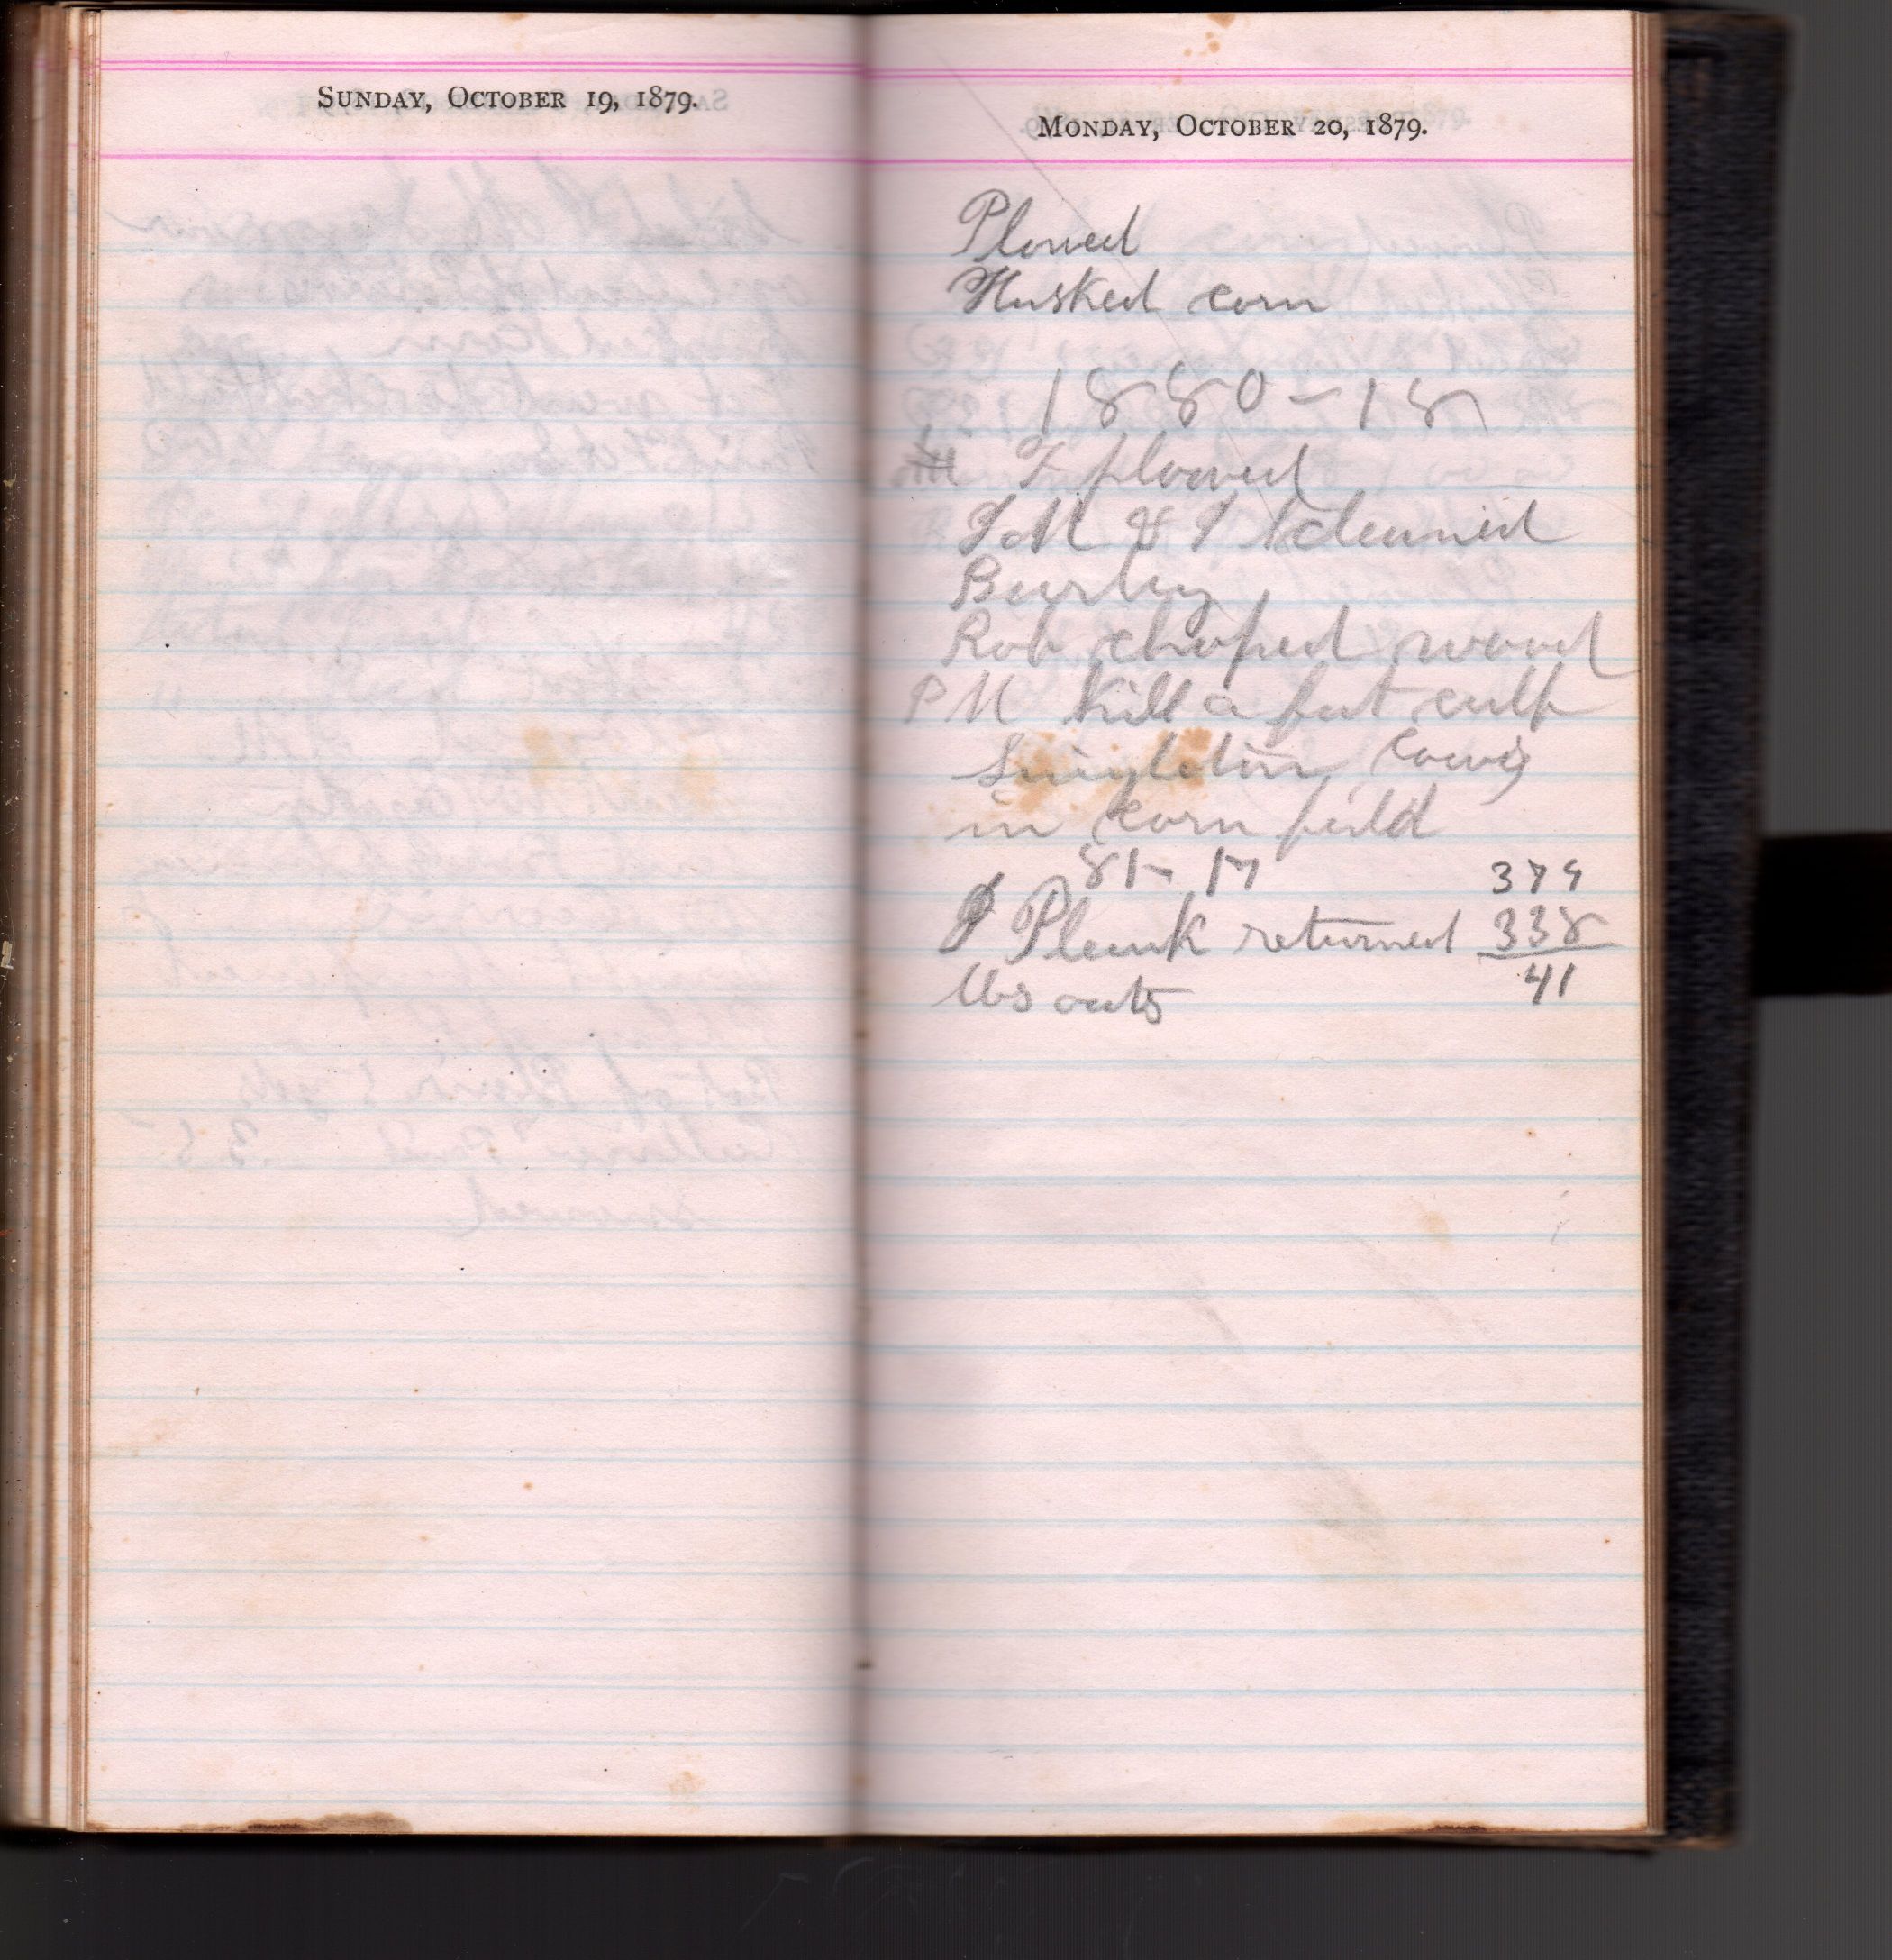 SUNDAY, OCTOBER 19, 1879.
MONDAY, OCTOBER 20, 1879.
Plowed
Husked corn
1880 - 18
T plowed
J M & T cleaned
Barley
Rob choped wood
PM kill a fat calf
Singleton cows
in corn field
81 - 17
J Plank returned
lbs oats
379
338
41